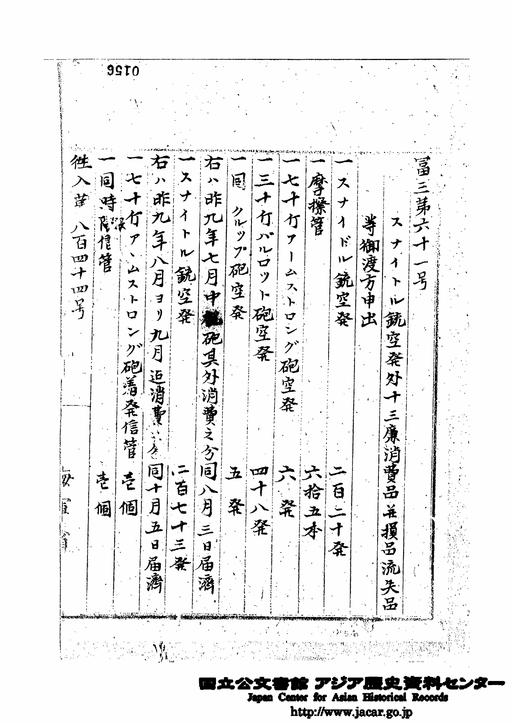 0156
富三第六十一号
スナイトル銃空発外十三廉消費品并損品流失品
等御渡方申出
一スナイドル銃空発 二百二十発
一摩擦管 六拾五本
一七十斤アームストロング砲空発 六発
一三十斤パルロット砲空発 四十八発
一同 クルップ砲空発 五発
右ハ昨九年七月中 砲其外消費之分同八月三日届濟
一スナイトル銃空発 二百七十三発
右ハ昨九年八月ヨリ九月迄消費 同十月五日届濟
一七十斤アームストロング砲着発信管 壱個
一同時限信管 壱個
往入第八百四十四号
海軍省
国立公文書館 アジア歴史資料センター
Japan Center for Asian Historical Records
http://www.jacar.go.jp